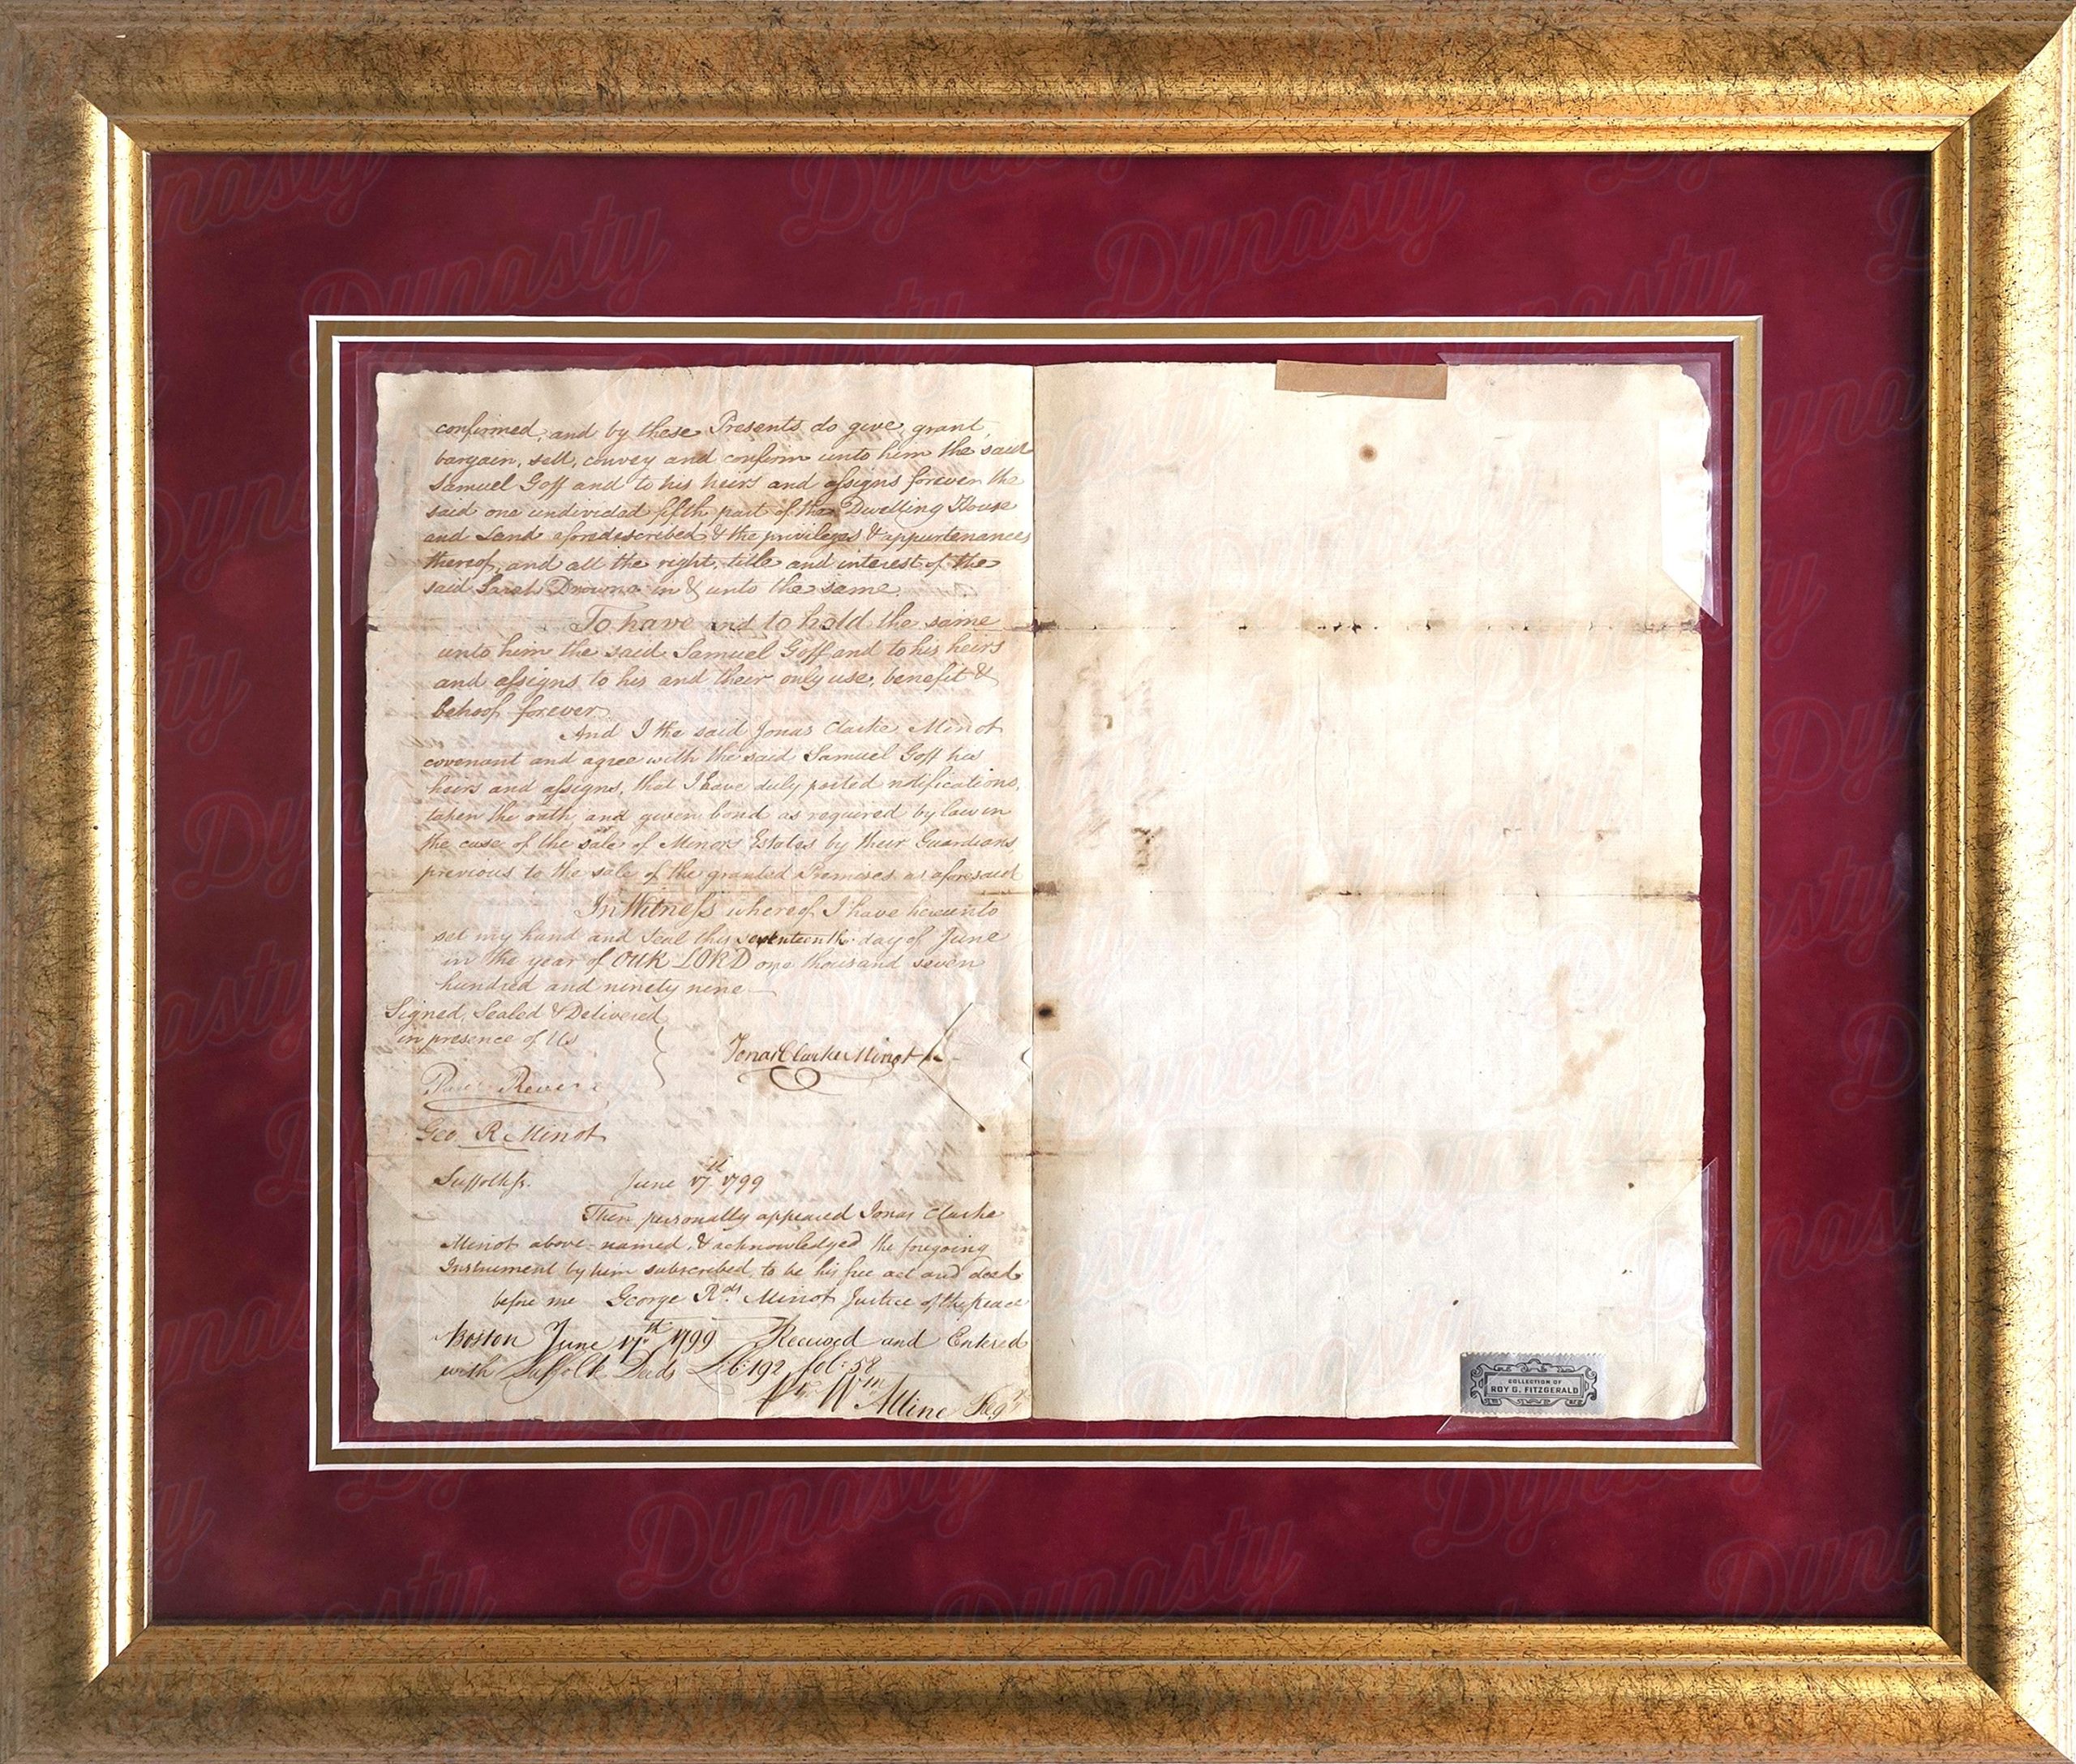 confirmed, and by these Presents do give, grant,
bargain, sell, convey and confirm unto him the said
Samuel Goff and to his heirs and assigns forever the
said one undivided fifth part of the Dwelling House
and Land aforedescribed & the privileges & appurtenances
thereof, and all the right, title and interest of the
said Sarah Drowne in & unto the same.
To have and to hold the same
unto him the said Samuel Goff and to his heirs
and assigns to his and their only use, benefit &
behoof forever.
And I the said Jonas Clarke Minot
covenant and agree with the said Samuel Goff his
heirs and assigns, that I have duly posted notifications,
taken the oath, and given bond as required by law in
the case of the sale of Minors Estates by their Guardians
previous to the sale of the granted Premises as aforesaid
In Witness whereof I have hereunto
set my hand and Seal this seventeenth day of June
in the year of OUR LORD one thousand seven
hundred and ninety nine
Signed, Sealed & Delivered
in presence of Us
Jonas Clarke Minot
Paul Revere
Geo. R Minot
Suffolk ss. June 17th 1799
Then personally appeared Jonas Clarke
Minot above-named, & acknowledged the foregoing
Instrument by him subscribed, to be his free act and deed
before me George Rds Minot Justice of the peace
Boston June 17th 1799 Received and Entered
with Suffolk Deeds Lib: 192 fol: 58
Wm Alline Regr
COLLECTION OF
ROY G. FITZGERALD
Dynasty